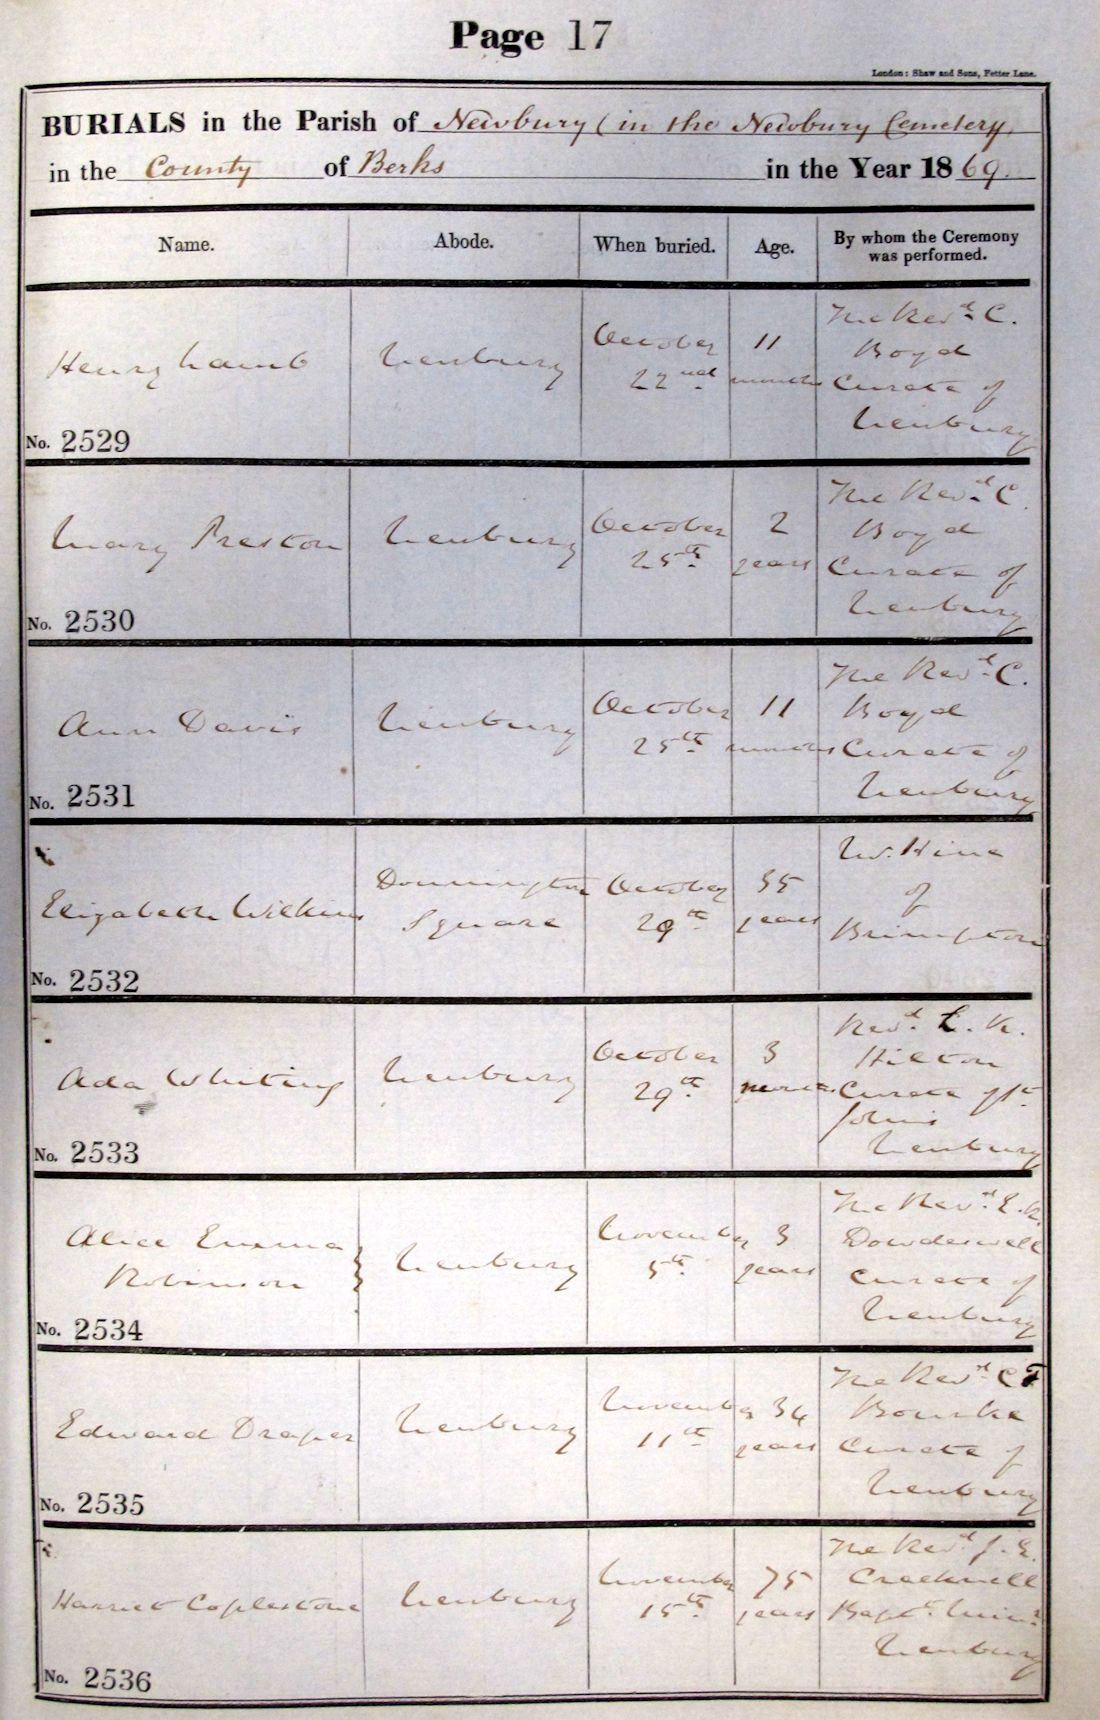 Page 17
London: Shaw and Sons, Fetter Lane.
BURIALS in the Parish of Newbury (in the Newbury Cemetery)
in the County of Berks in the Year 1869.
Name. Abode. When buried. Age. By whom the Ceremony was performed.
Henry Lamb
No. 2529
Newbury
October
22nd
11
months
The Revd. C.
Boyd
Curate of
Newbury
Mary Preston
No. 2530
Newbury
October
25th
2
years
The Revd. C.
Boyd
Curate of
Newbury
Ann Davis
No. 2531
Newbury
October
25th
11
months
The Revd. C.
Boyd
Curate of
Newbury
Elizabeth Wilkins
No. 2532
Donnington
Square
October
29th
35
years
W. Hine
of
Brimpton
Ada Whiting
No. 2533
Newbury
October
29th
3
Revd. L. K.
Hilton
Curate of St
Johns
Newbury
Alice Emma
Robinson
No. 2534
Newbury
November
5th
3
years
The Revd. E. R.
Dowdeswell
Curate of
Newbury
Edward Draper
No. 2535
Newbury
November
11th
34
years
The Revd. C F
Bourke
Curate of
Newbury
Harriet Coplestone
No. 2536
Newbury
November
15th
75
years
The Revd. J. E.
Cracknell
Bapt. Minr.
Newbury